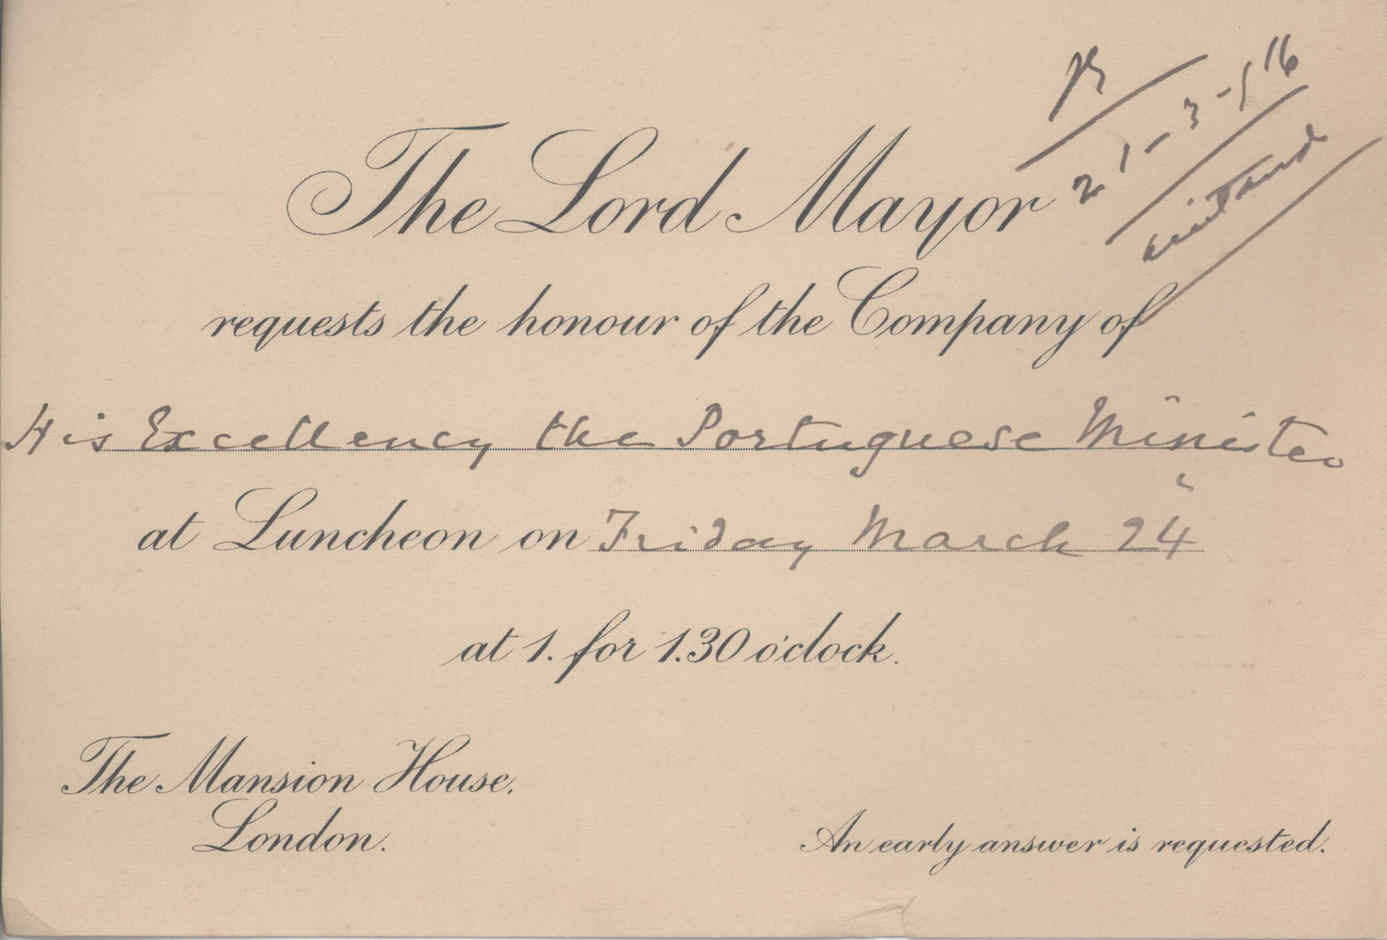 R
21-3-916
The Lord Mayor
requests the honour of the Company of
His Excellency the Portuguese Minister
at Luncheon on Friday March 24
at 1. for 1.30 o'clock.
The Mansion House.
London.
An early answer is requested.